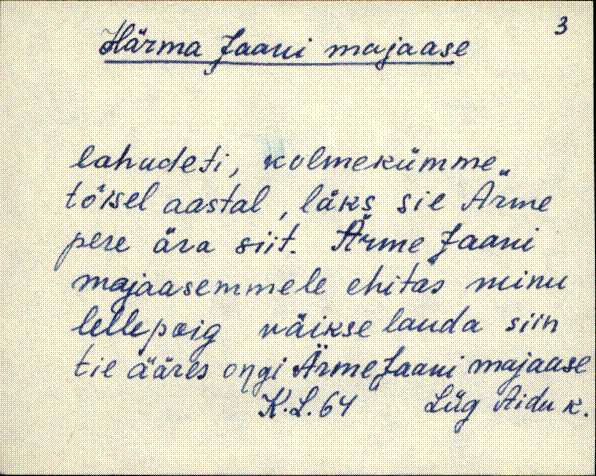 3
Härma Jaani majaase
lahudeti, kolmekümme
tõisel aastal, läks sie Ärme
pere ära siit. Ärme Jaani
majaasemmele ehitas minu
lellepoig väikse lauda siin
tie ääres oŋgi Ärme Jaani majaase
K.L. 64 Lüg Aidu k.